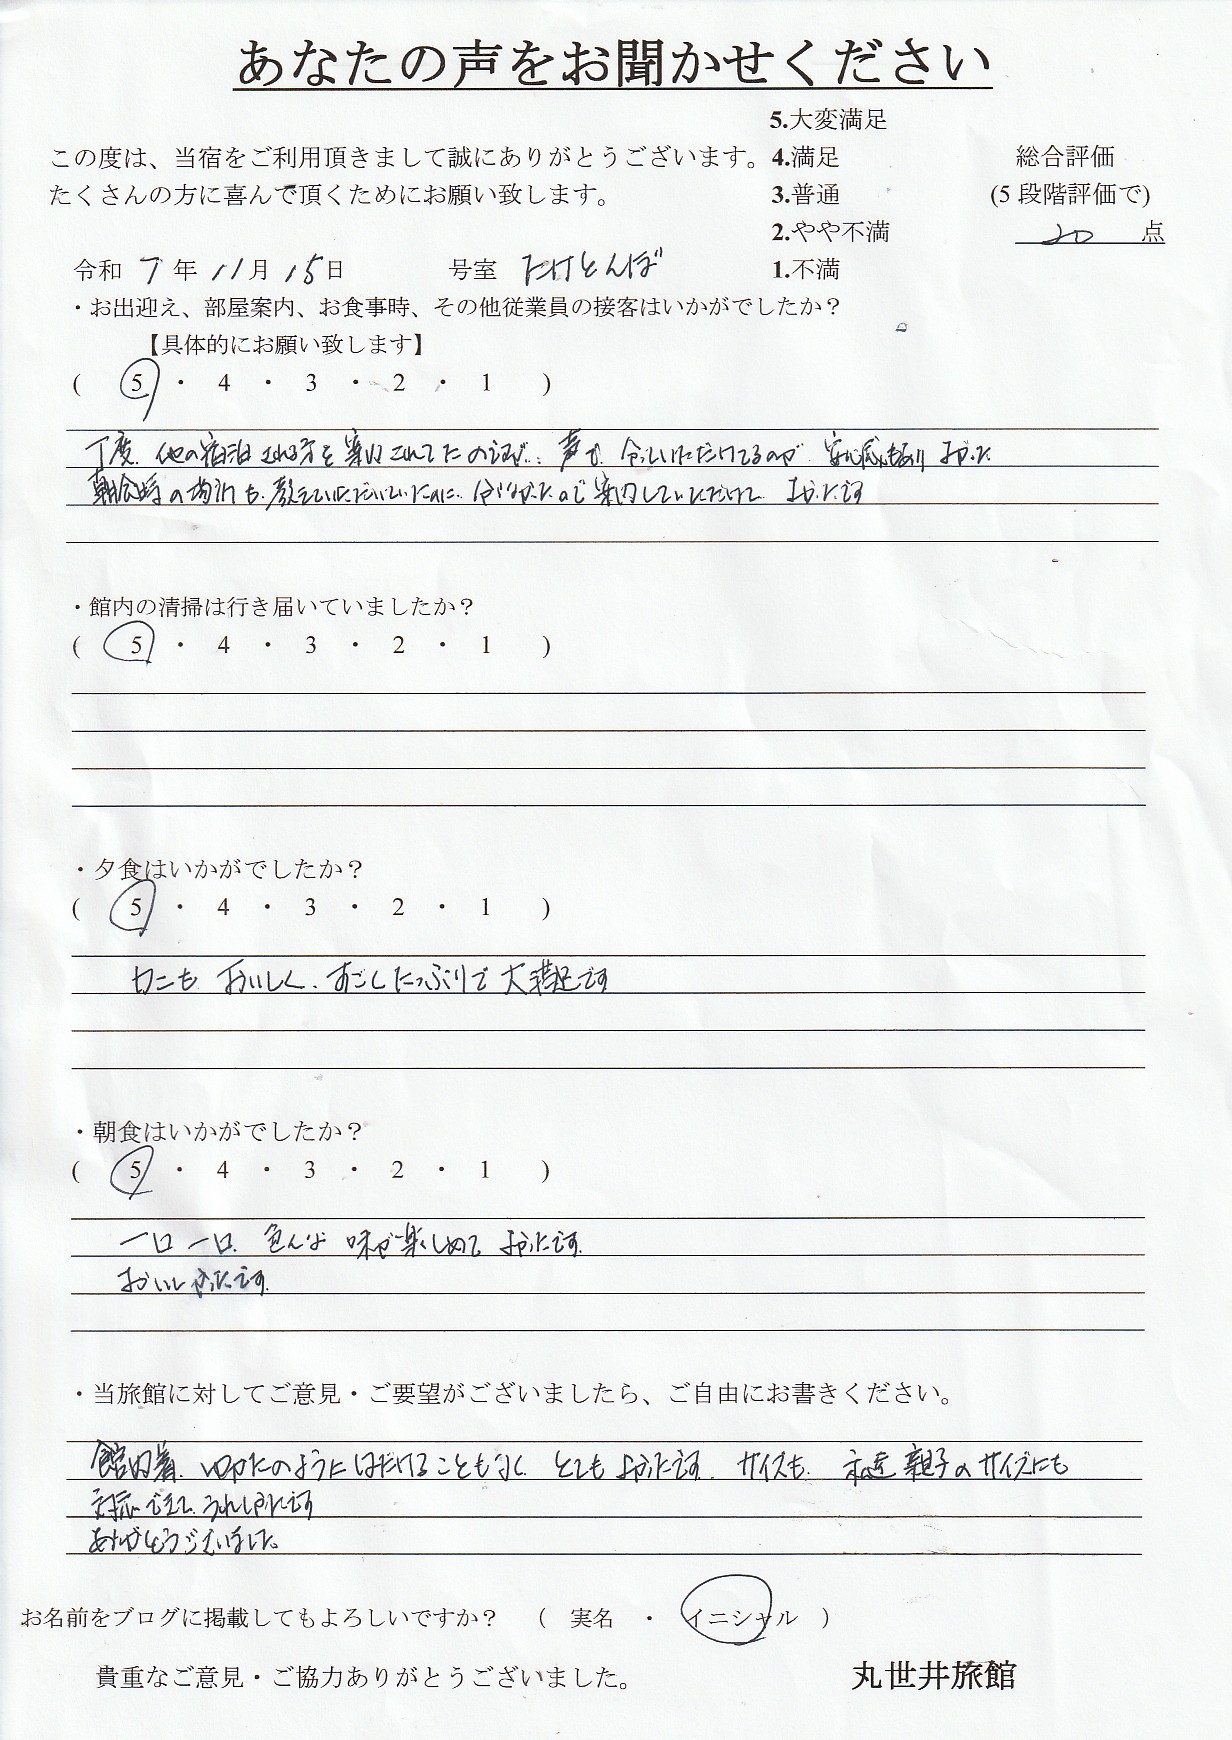 あなたの声をお聞かせください
5.大変満足
この度は、当宿をご利用頂きまして誠にありがとうございます。 4.満足 総合評価
たくさんの方に喜んで頂くためにお願い致します。 3.普通 (5段階評価で)
2.やや不満 20 点
令和 7 年 11 月 15 日 号室 たけとんぼ 1.不満
・お出迎え、部屋案内、お食事時、その他従業員の接客はいかがでしたか？
【具体的にお願い致します】
( 5 ・ 4 ・ 3 ・ 2 ・ 1 )
丁度、他の宿泊される方を案内されてたのですが、声で いただけてるので 安心感もあり よかった
朝食時の場所も教えていただいていたのに、分からなかったので案内していただけて よかったです
・館内の清掃は行き届いていましたか？
( 5 ・ 4 ・ 3 ・ 2 ・ 1 )
・夕食はいかがでしたか？
( 5 ・ 4 ・ 3 ・ 2 ・ 1 )
カニも おいしく、すごしたっぷりで 大満足です
・朝食はいかがでしたか？
( 5 ・ 4 ・ 3 ・ 2 ・ 1 )
一口 一口、色んな 味が楽しめて よかったです。
おいしかったです。
・当旅館に対してご意見・ご要望がございましたら、ご自由にお書きください。
館内着、ゆかたのようにはだけることもなく、とても よかったです。サイズも、 親子のサイズにも
対応できて、うれしかったです
ありがとうございました。
お名前をブログに掲載してもよろしいですか？ （ 実名 ・ イニシャル ）
貴重なご意見・ご協力ありがとうございました。 丸世井旅館